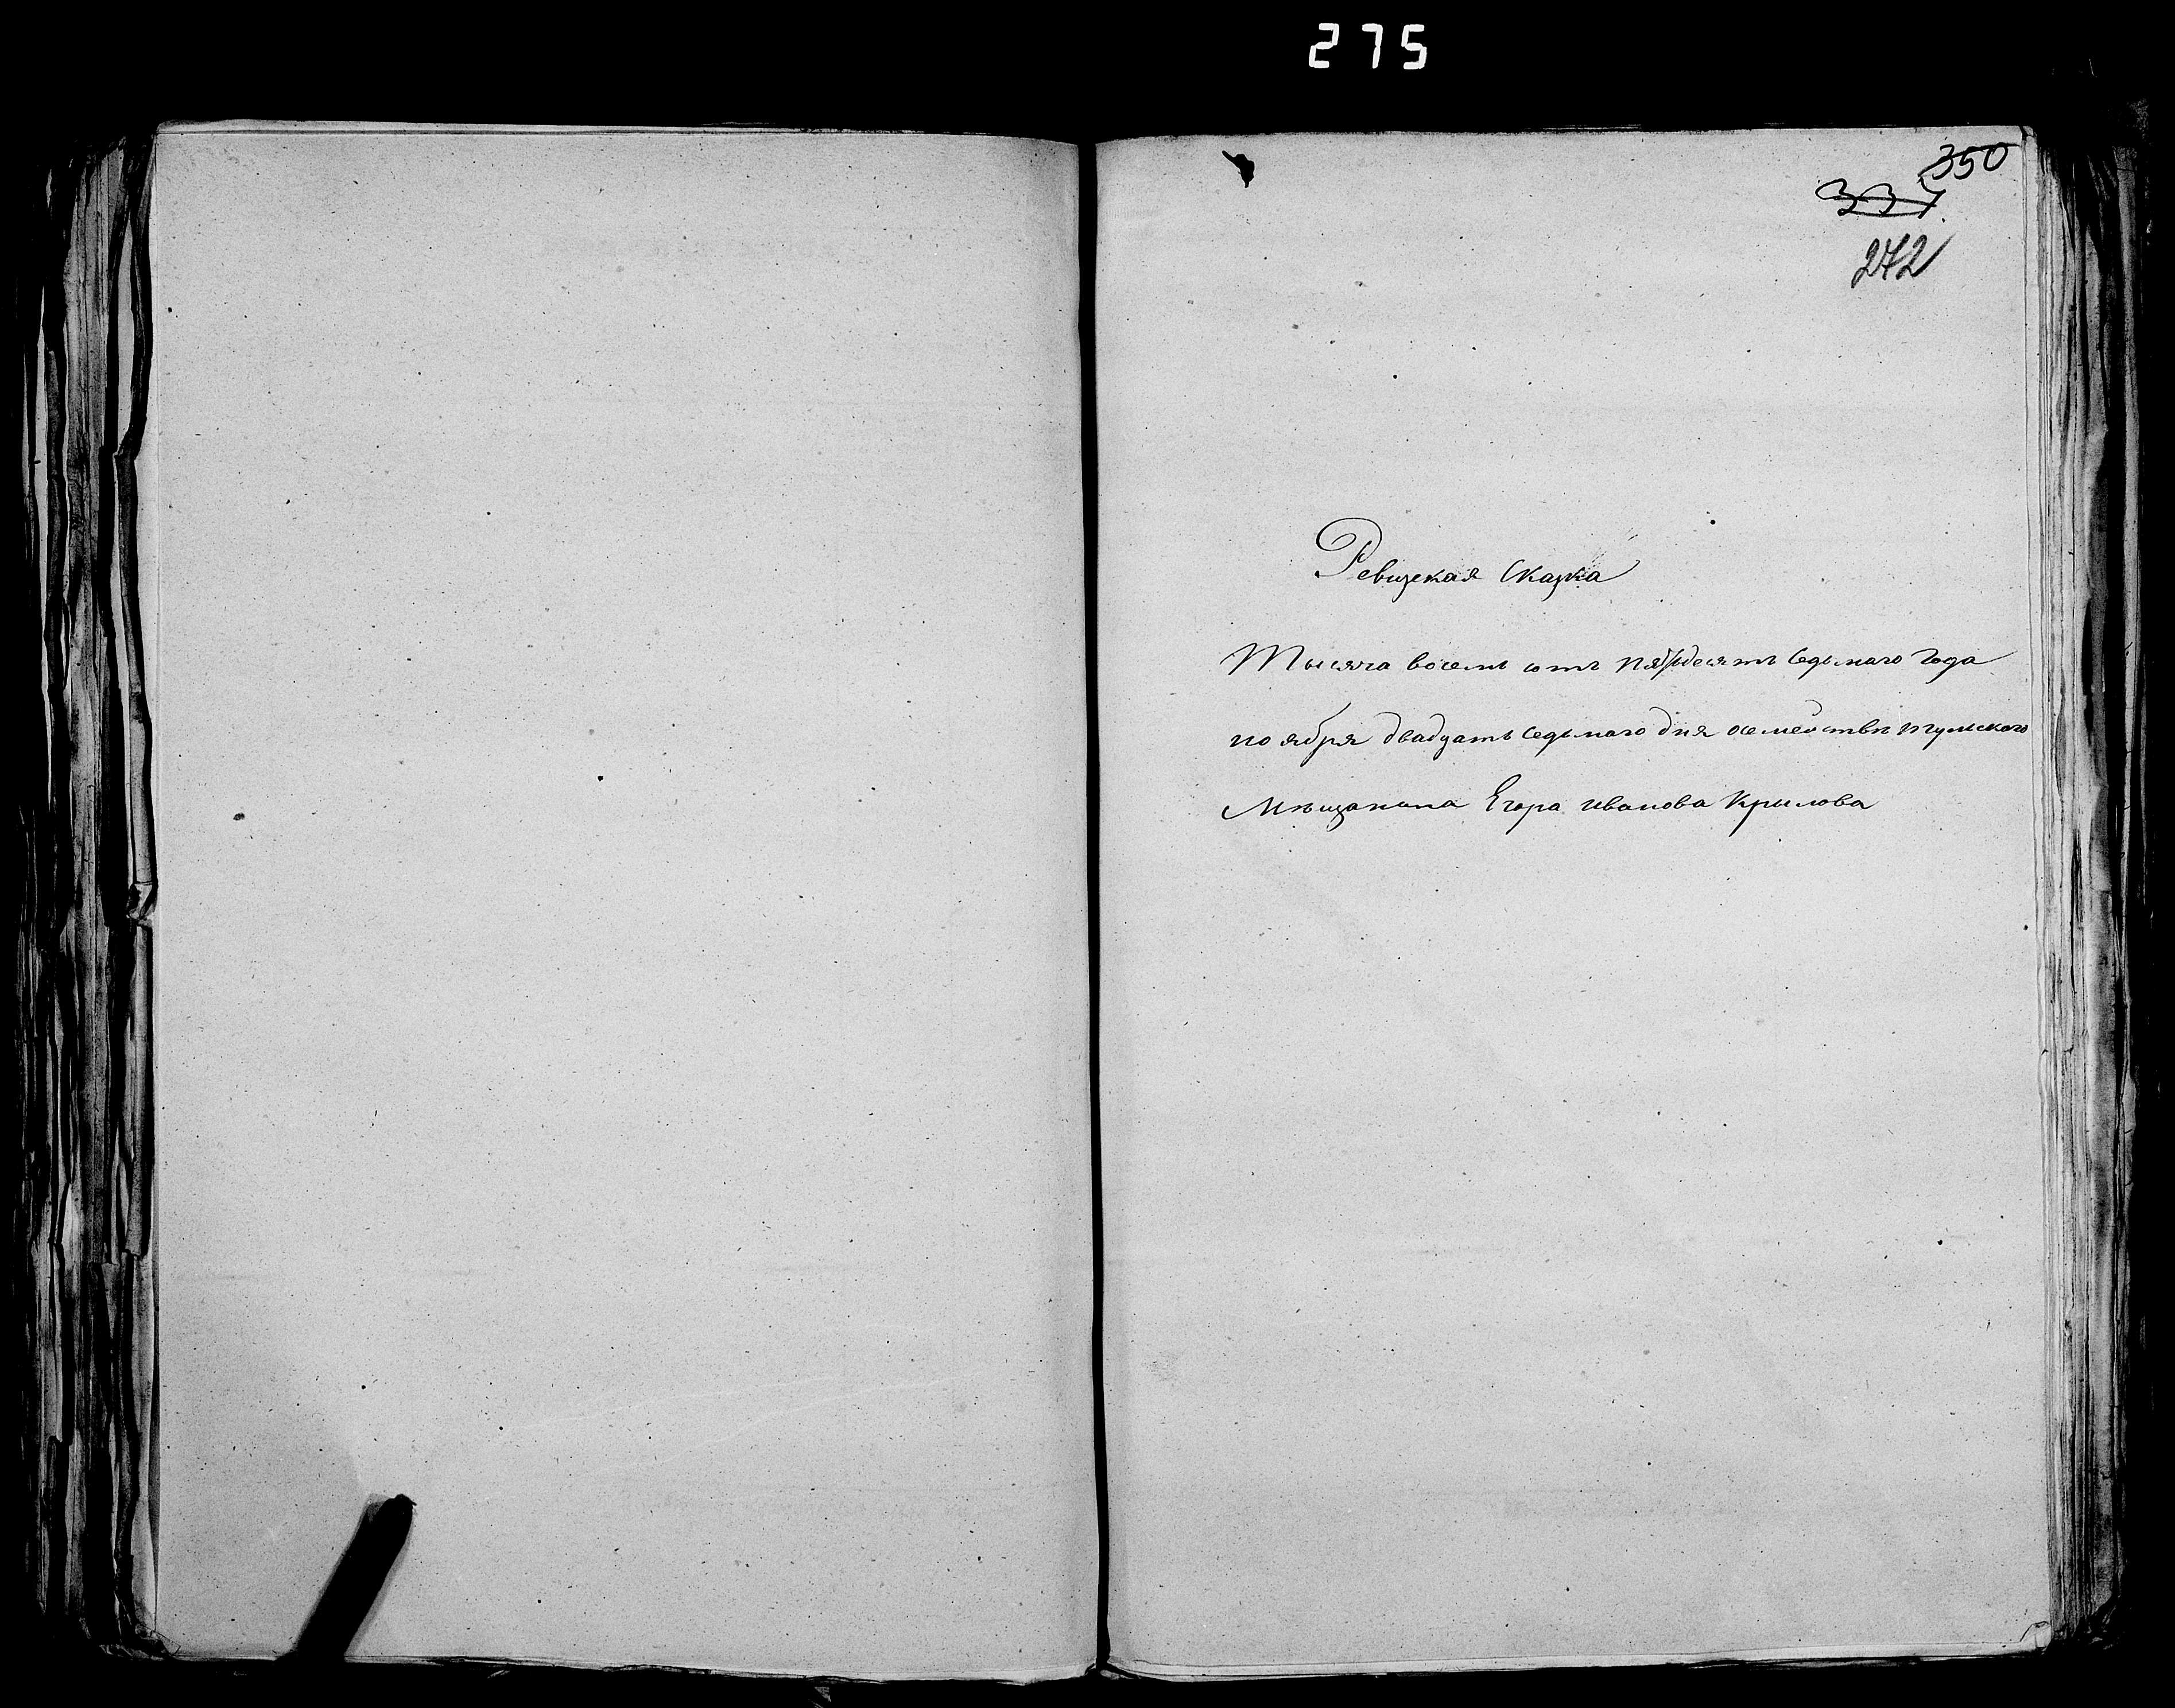 275
350
337
272
Ревизская Сказка
Тысяча восемь сотъ пятьдесятъ седьмаго года
ноября двадцать седьмаго дня осемействѣ тульскаго
Мѣщанина Егора Иванова Крылова